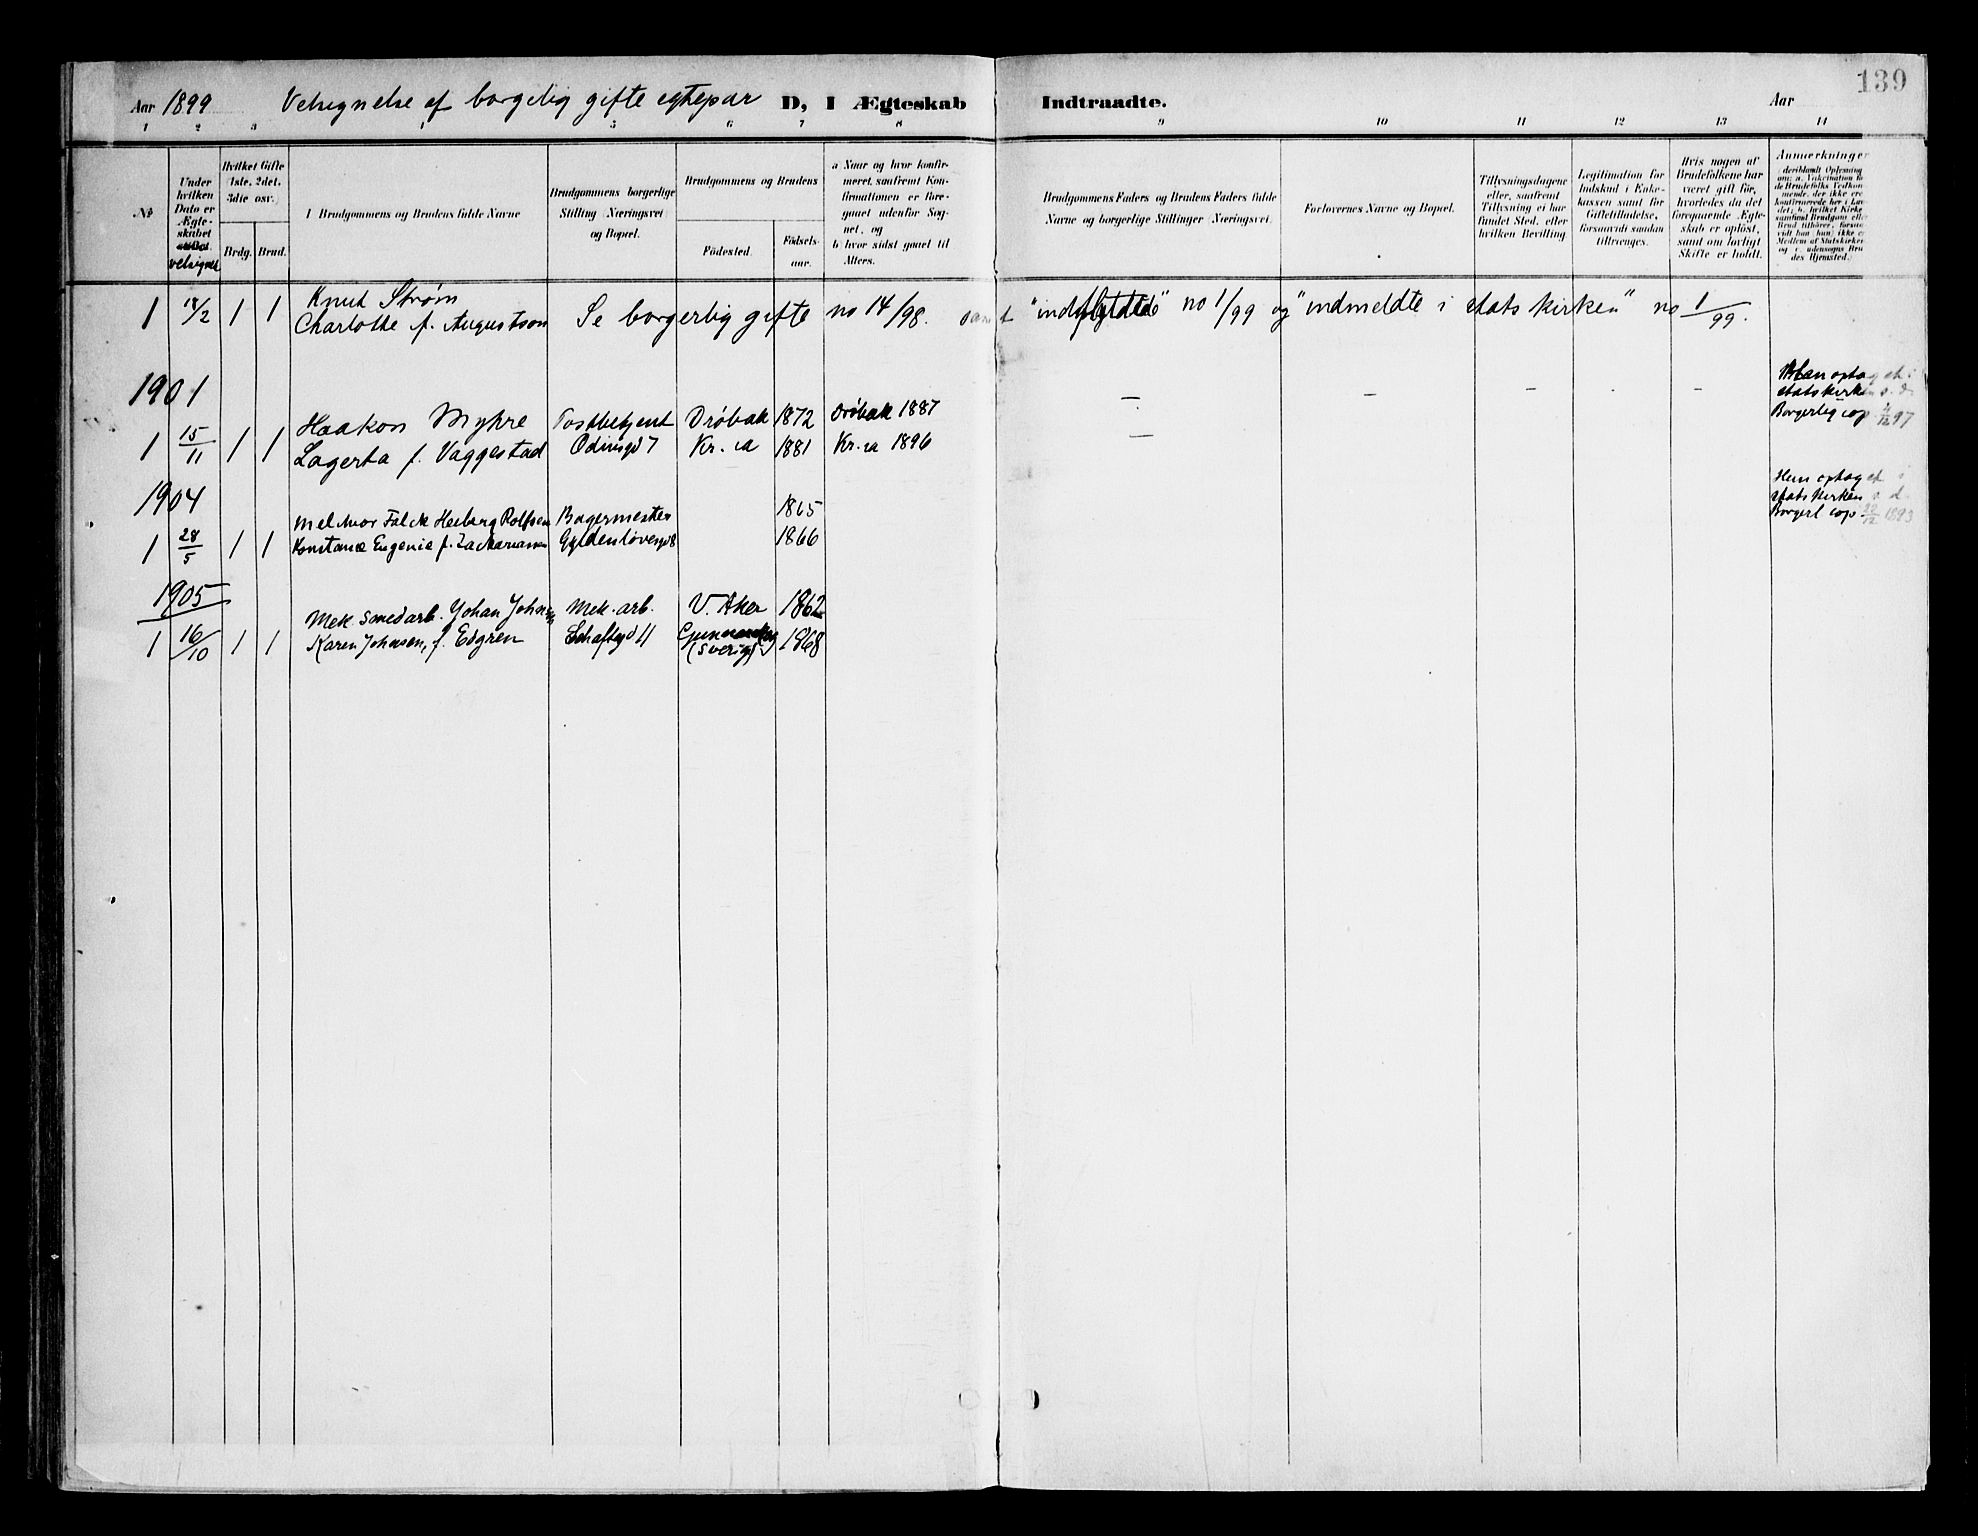 139
Aar 1899 Velsignelse af borgelig gifte egtepar D, I Ægteskab Indtraadte. Aar
1 2 3 4 5 6 7 8 9 10 11 12 13 14
No
Under hvilken Dato er Ægteskabet velsignet
Hvilket Gifte (1ste, 2det, 3die osv.)
Brdg. Brud.
Brudgommens og Brudens fulde Navne
Brudgommens borgerlige Stilling (Næringsvei) og Bopæl.
Brudgommens og Brudens
Födested. Födselsaar.
a Naar og hvor konfirmeret, saafremt Konfirmationen er foregaaet udenfor Sognet, og
b) hvor sidst gaaet til Alters.
Brudgommens Faders og Brudens Faders fulde Navne og borgerlige Stillinger (Næringsvei).
Forlovernes Navne og Bopæl.
Tillysningsdagene eller, saafremt Tillysning ei har fundet Sted, efter hvilken Bevilling
Legitimation for Indskud i Enkekassen samt for Giftetilladelse, forsaavidt saadan tiltrænges.
Hvis nogen af Brudefolkene har været gift før, hvorledes da det foregaaende Ægteskab er opløst, samt om lovligt Skifte er holdt.
Anmærkninger
1 18/2 1 1 Knut Strøm
Charlotte f. Augustson Se borgerlig gifte no 14/98. samt "indflyttede" no 1/99 og "indmeldte i statskirken" no 1/99.
1901
1 15/11 1 1 Haakon Myhre Postbetjent Drøbak 1872 Drøbak 1887 – – – –
Lagerta f. Vaggestad Odinsgd 7 Kr.ia 1881 Kr.ia 1896 –
optaget i
statskirken s. d.
Borgerlig cop. 97
1904
1 28/5 1 1 Melchior Falck Heiberg Rolfsen Bagermester 1865
Konstance Eugenie f. Zachariassen Gyldenløvesgd 8 1866
Hun optaget i
statskirken s. d.
Borgerl cop. 1893
1905
1 16/10 1 1 Mek. smedarb. Johan Johnsen Mek. arb. V. Aker 1862
Karen Johnsen, f. Edgren 11 (Sverige) 1868